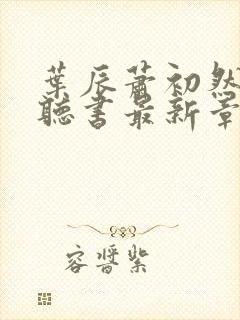 葉辰蕭初然
聽書最新章
容晉紫